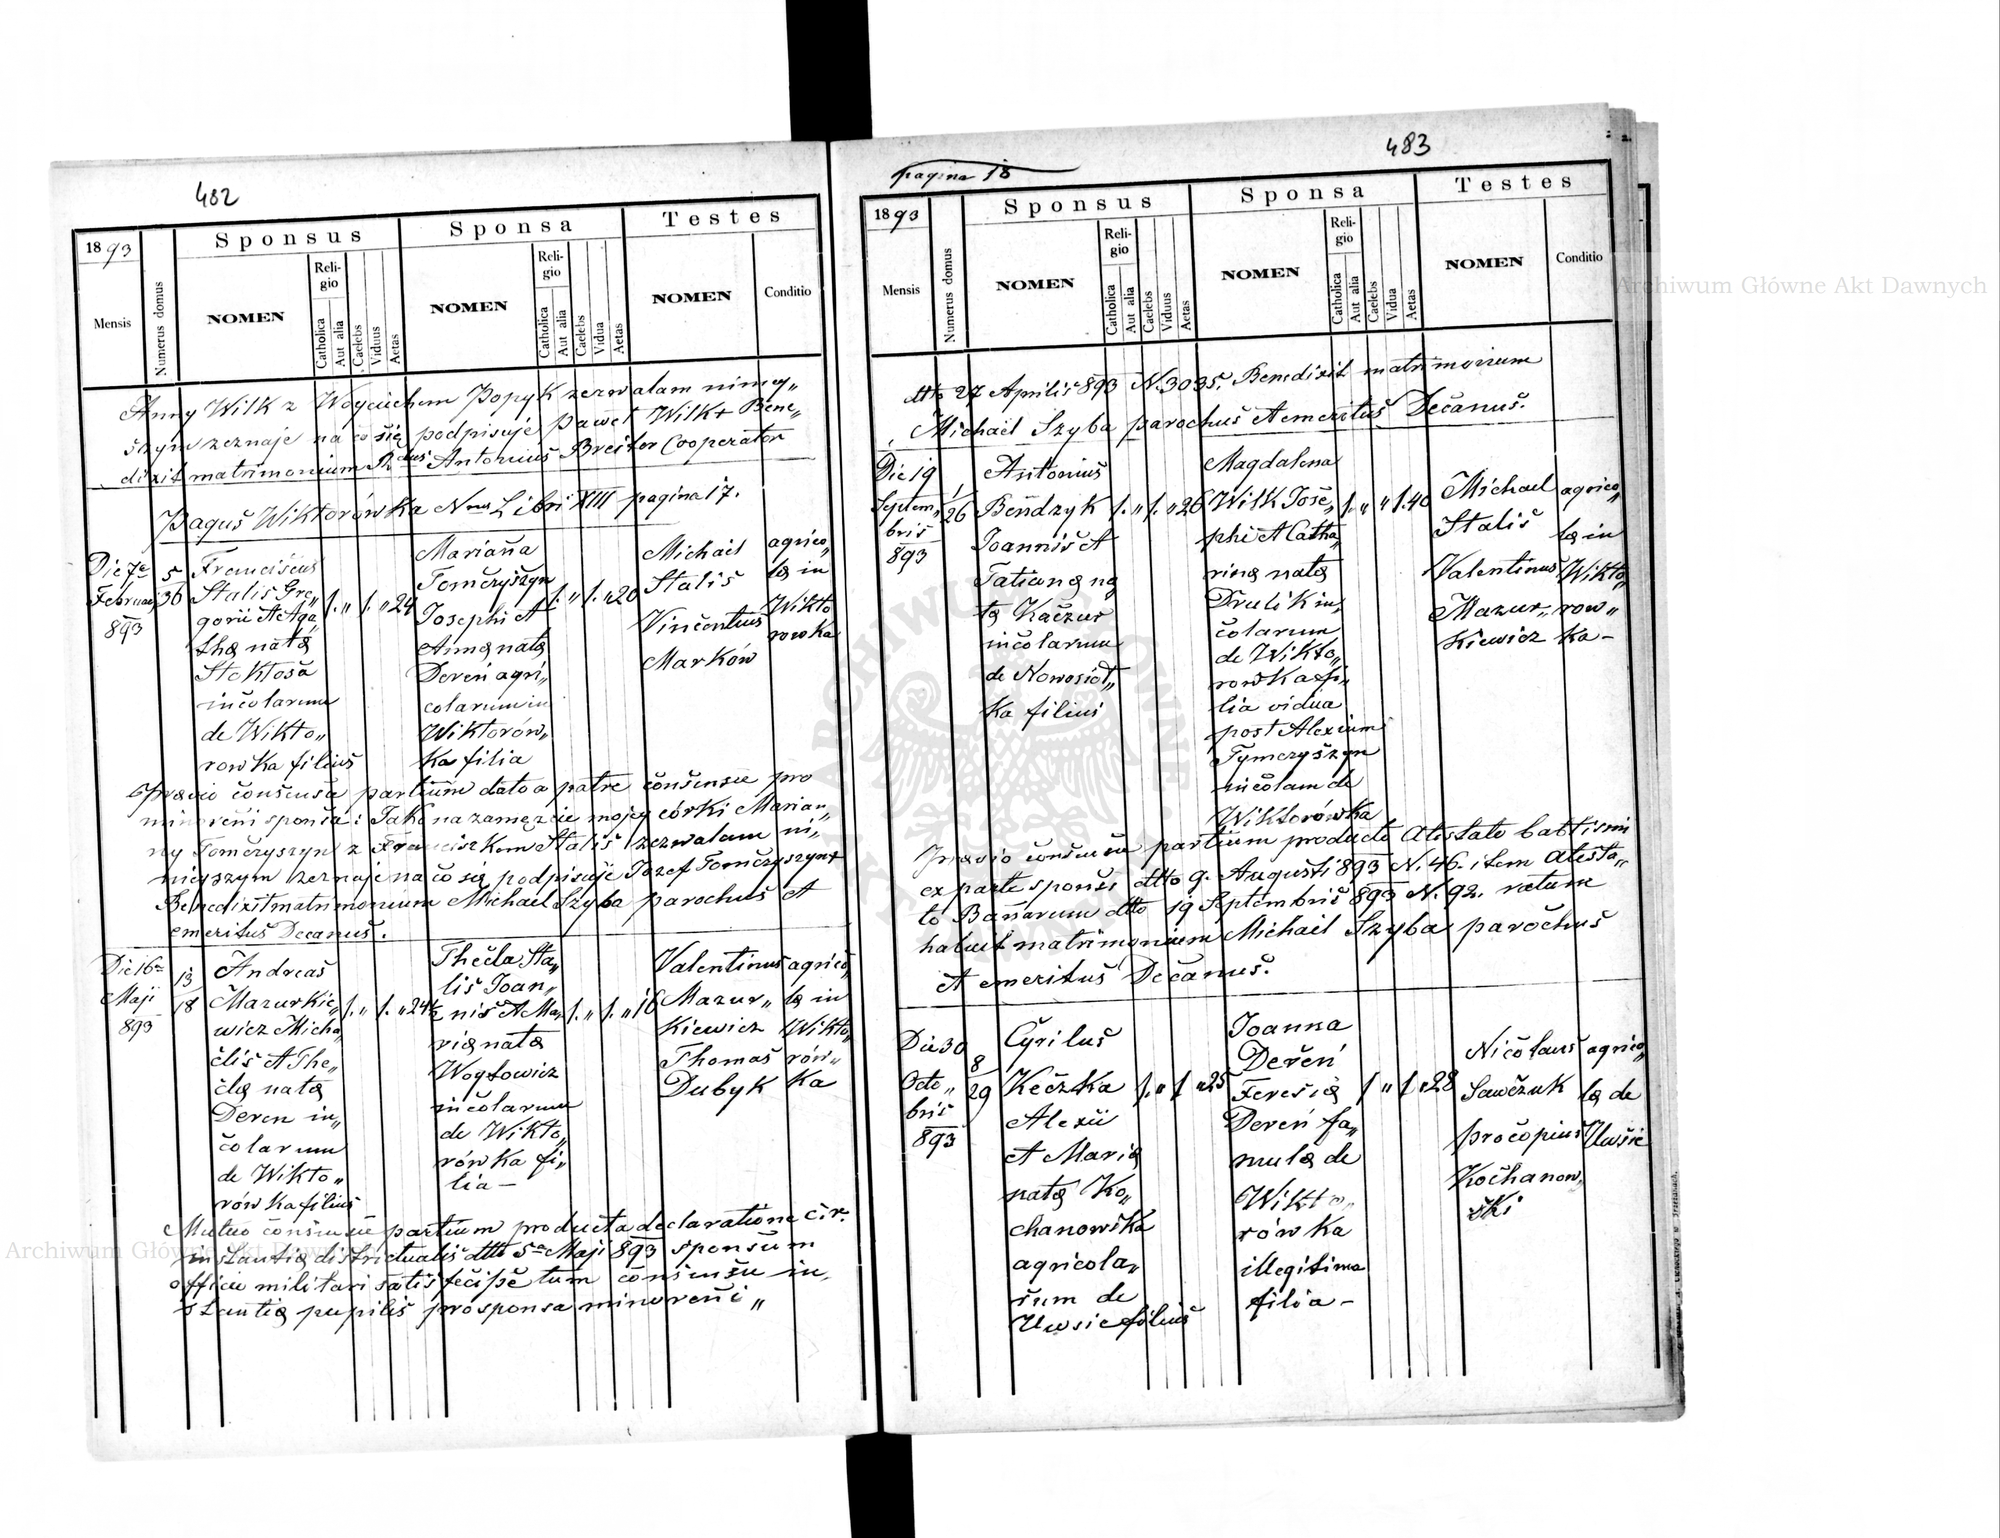 482
1893
Mensis
Numerus domus
Sponsus
NOMEN
Religio
Catholica
Aut alia
Caelebs
Viduus
Aetas
Sponsa
NOMEN
Religio
Catholica
Aut alia
Caelebs
Vidua
Aetas
Testes
NOMEN
Conditio
Anny Wilk z Wojciechem Popyk zezwalam niniej„
szym zeznaje na co się podpisuje Paweł Wilk + Bene„
dixit matrimonium Antonius Breiter Cooperator
Pagus Wiktorówka Nrus Libri XIII pagina 17.
Die 7a
Februar
893
5
36
Franciscus
Stalis Gre„
gorii et Aga„
tha nata
Stoktosa
incolarum
de Wikto„
rowka filius
1. „ 1. „ 24
Marianna
Tomczyszyn
Josephi et
Anna nata
Dereń agri„
colarum in
Wiktorów„
ka filia
1. „ 1. „ 20
Michael
Stalis
Vincentius
Marków
agrico„
la in
Wikto
rowka
Praevio consensu partium dato a patre consensu pro
minoreni sponsa: Jako na zamęzcie mojej córki Marian„
ny Tomczyszyn z Franciszkem Stalis zezwalam ni„
niejszym zeznaje na co się podpisuje Jozef Tomczyszyn +
Benedixit matrimonium Michael Szyba parochus et
emeritus Decanus.
Die 16a
Maji
893
13
18
Andreas
Mazurkie„
wicz Micha„
elis et The„
cla nata
Deren in„
colarum
de Wikto„
rówka filius
1. „ 1. „ 24½
Thecla Sta„
lis Joan„
nis et Ma„
ria nata
Woytowicz
incolarum
de Wikto„
rówka fi„
lia —
1. „ 1. „ 16
Valentinus
Mazur„
kiewicz
Thomas
Dubyk
agrico„
la in
Wikto„
rów„
ka
Mutuo consensu partium producta declaratione c.r.
instantia districtualis dtto 5a Maji 893 sponsum
officii militari satisfecisse tum consensu in„
stantia pupilis pro sponsa minoreni „
pagina 18
483
1893
Mensis
Numerus domus
Sponsus
NOMEN
Religio
Catholica
Aut alia
Caelebs
Viduus
Aetas
Sponsa
NOMEN
Religio
Catholica
Aut alia
Caelebs
Vidua
Aetas
Testes
NOMEN
Conditio
dtto 27 Aprilis 893 N. 3035. Benedixit matrimonium
Michael Szyba parochus et emeritus Decanus.
Die 19
Septem„
bris
893
1
26
Antonius
Bendzyk
Joannis et
Tatianna na„
ta Kaczur
incolarum
de Nowosiół„
ka filius
1. „ 1. „ 26
Magdalena
Wilk Jose„
phi et Catha„
rina nata
Drulik in„
colarum
de Wikto„
rowka fi„
lia vidua
post Alexium
Tymczyszyn
incolam de
Wiktorówka
1. „ „ 1. 40
Michael
Stalis
Valentinus
Mazur„
kiewicz
agrico„
la in
Wikto„
row„
ka —
Praevio consensu partium producto Atestato baptismi
ex parte sponsi dtto 9. Augusti 893 N. 46. item Atesta„
to Bannorum dtto 19 Septembris 893 N. 92. ratum
habuit matrimonium Michael Szyba parochus
et emeritus Decanus.
Die 30
Octo„
bris
893
8
29
Cyrilus
Keczka
Alexii
et Maria
nata Ko„
chanowska
agricola„
rum de
Uwsie filius
1. „ 1 „ 25
Joanna
Dereń
Feresia
Dereń fa„
mula de
Wikto„
rówka
illegitima
filia —
1 „ 1. „ 28
Nicolaus
Sawczuk
Procopius
Kochanow„
ski
agrico„
la de
Uwsie
Archiwum Główne Akt Dawnych
Archiwum Główne Akt Dawnych